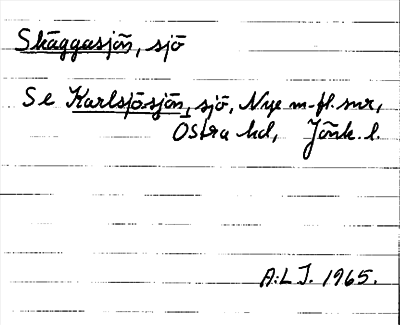 Skäggasjön, sjö
Se Karlsjösjön, sjö, Nye m-fl. snr,
Östra hd, Jönk. l.
A:LJ. 1965.